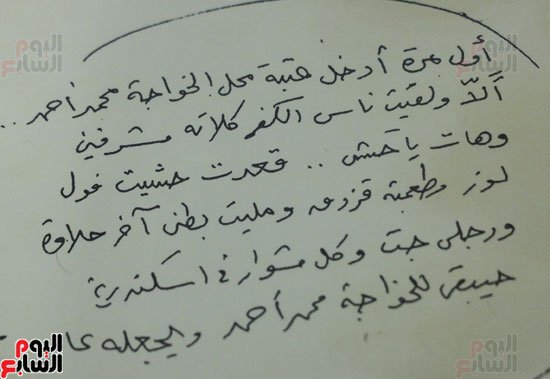 اليوم السابع
اليوم السابع
أول مرة أدخل عتبة محل الخواجة محمد أحمد ..
ألا ولقيت ناس الكفر كلاته مشرفين
وهات يا حش .. قعدت حشيت فول
لوز وطعمية قزدمه ومليت بطنى آخر حلاوة
ورجلى جت وكل مشوار فى اسكندرية
حيبقى للخواجة محمد أحمد ويجعله عا
اليوم السابع
اليوم السابع